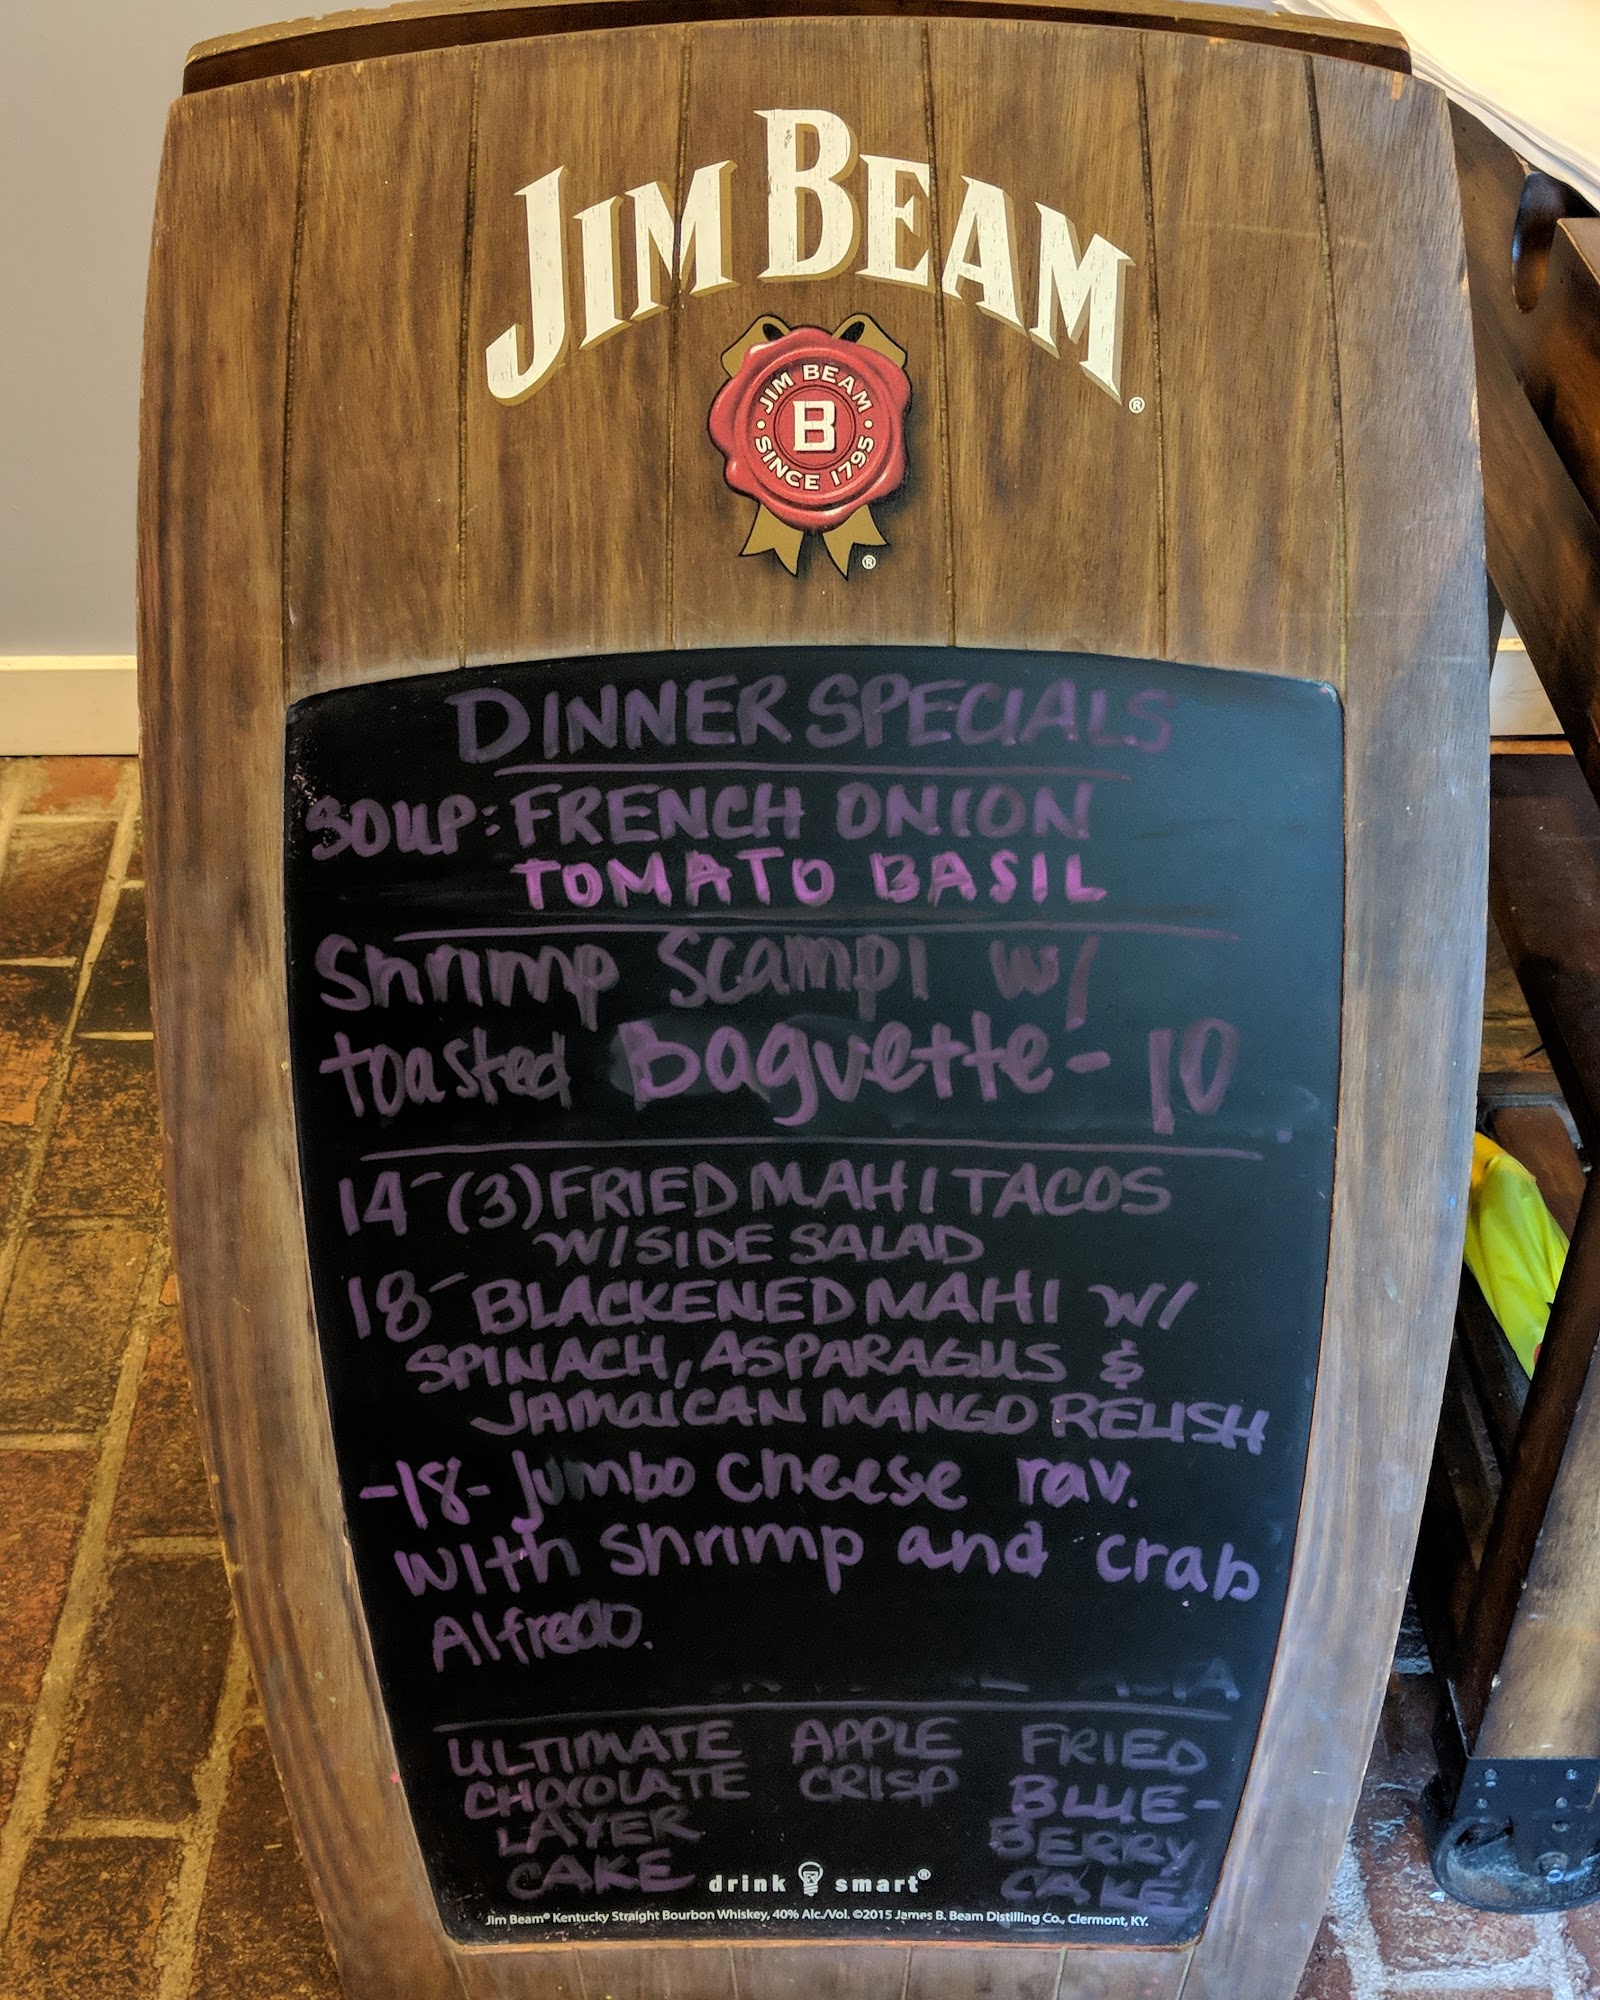 JIM BEAM ®
JIM BEAM
B
· SINCE 1795 ·
®
DINNER SPECIALS
SOUP: FRENCH ONION
TOMATO BASIL
Shrimp Scampi w/
toasted Baguette - 10
14 - (3) FRIED MAHI TACOS
W/ SIDE SALAD
18 - BLACKENED MAHI W/
SPINACH, ASPARAGUS &
JAMAICAN MANGO RELISH
-18- Jumbo cheese rav.
with shrimp and crab
Alfredo.
ULTIMATE APPLE FRIED
CHOCOLATE CRISP BLUE-
LAYER BERRY
CAKE CAKE
drink smart®
Jim Beam® Kentucky Straight Bourbon Whiskey, 40% Alc./Vol. ©2015 James B. Beam Distilling Co., Clermont, KY.